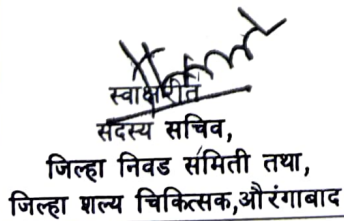 स्वाक्षरीत
सदस्य सचिव,
जिल्हा निवड समिती तथा,
जिल्हा शल्य चिकित्सक,औरंगाबाद